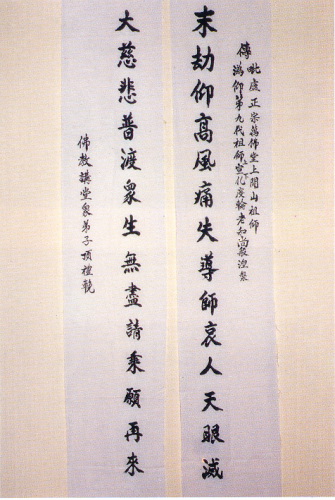 傳
毗盧正宗萬佛堂上開山祖師
溈仰第九代祖師宣化度輪老和尚般涅槃
末劫仰高風痛失導師哀人天眼滅
大慈悲普渡眾生無盡請乘願再來
佛教講堂眾弟子頂禮輓